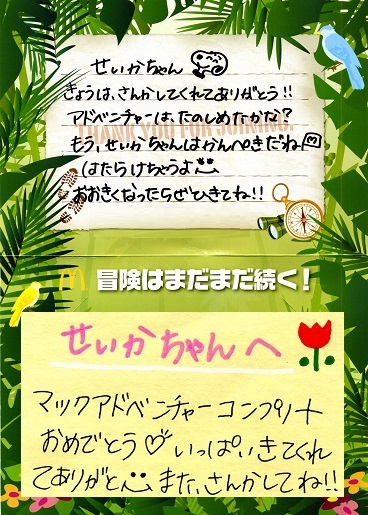 せいかちゃん
きょうは、さんかしてくれてありがとう!!
アドベンチャーは、たのしめたかな?
THANK YOU FOR JOINING!
もう、せいかちゃんはかんぺきだね
はたらけちゃうよ
おおきくなったらぜひきてね!!
冒険はまだまだ続く!
せいかちゃんへ
マックアドベンチャーコンプリート
おめでとう♡いっぱいきてくれ
てありがとう また、さんかしてね!!